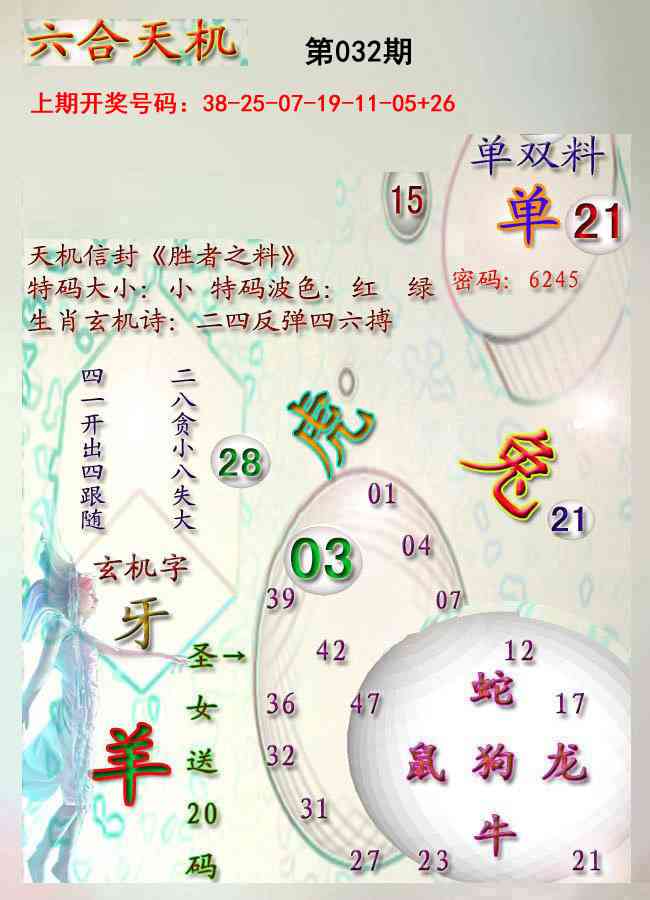 六合天机
第032期
上期开奖号码：38-25-07-19-11-05+26
单双料
15
单
21
天机信封《胜者之料》
特码大小：小 特码波色：红 绿
密码：6245
生肖玄机诗：二四反弹四六搏
二八贪小八失大
四一开出四跟随
28
虎
兔
21
01
03
04
39
07
玄机字
牙
羊
圣→女送20码
42
12
36
47
蛇
17
32
鼠 狗 龙
31
牛
27
23
21